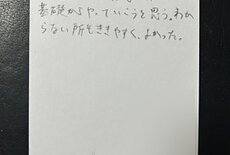 基礎からやっていこうと思う。わか
らない所もききやすく、よかった。